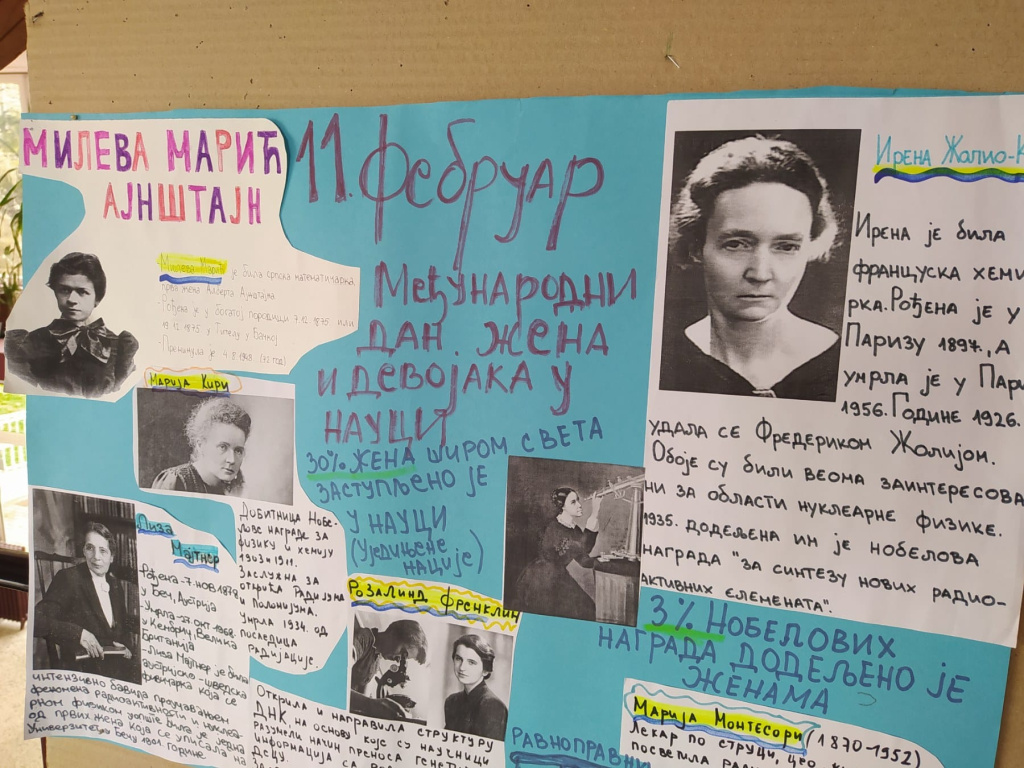 МИЛЕВА МАРИЋ
АЈНШТАЈН
Милева Марић је била српска математичарка,
прва жена Алберта Ајнштајна
Рођена је у богатој породици 7.12.1875. или
19.12.1875. у Тителу у Бачкој
-Преминула је 4.8.1948. (72 год)
МАРИЈА КИРИ
ДОБИТНИЦА НОБЕ-
ЛОВЕ НАГРАДЕ ЗА
ФИЗИКУ И ХЕМИЈУ
1903 И 1911.
ЗАСЛУЖНА ЗА
ОТКРИЋА РАДИЈУМА
И ПОЛОНИЈУМА.
УМРЛА 1934. ОД
ПОСЛЕДИЦА
РАДИЈАЦИЈЕ.
ЛИЗА
МАЈТНЕР
Рођена -7. нов 1878
у Бечу, Аустрија
-Умрла -27. окт 1968.
у Кембриџ, Велика
Британија
-Лиза Мајтнер је била
аустријско-шведска
физичарка која се
интензивно бавила проучавањем
феномена радиоактивности и нуклеа-
рном физиком уопште. Била је једна
од првих жена која се уписала на
Универзитет у Бечу 1901. године
11. фебруар
МЕЂУНАРОДНИ
ДАН ЖЕНА
И ДЕВОЈАКА У
НАУЦИ
30% ЖЕНА ШИРОМ СВЕТА
ЗАСТУПЉЕНО ЈЕ
У НАУЦИ
(УЈЕДИЊЕНЕ
НАЦИЈЕ)
РОЗАЛИНД ФРЕНКЛИН
ОТКРИЛА И НАПРАВИЛА СТРУКТУРУ
ДНК, НА ОСНОВУ КОЈЕ СУ НАУЧНИЦИ
РАЗУМЕЛИ НАЧИН ПРЕНОСА
ИНФОРМАЦИЈА СА
ДЕЦУ.
ИРЕНА ЖОЛИО-К
ИРЕНА ЈЕ БИЛА
ФРАНЦУСКА ХЕМИ
РКА. РОЂЕНА ЈЕ У
ПАРИЗУ 1897., А
УМРЛА ЈЕ У ПАРИ
1956. ГОДИНЕ 1926.
УДАЛА СЕ ФРЕДЕРИКОМ ЖОЛИЈОМ.
ОБОЈЕ СУ БИЛИ ВЕОМА ЗАИНТЕРЕСОВА
НИ ЗА ОБЛАСТИ НУКЛЕАРНЕ ФИЗИКЕ.
1935. ДОДЕЉЕНА ИМ ЈЕ НОБЕЛОВА
НАГРАДА "ЗА СИНТЕЗУ НОВИХ РАДИО-
АКТИВНИХ ЕЛЕМЕНАТА".
3% НОБЕЛОВИХ
НАГРАДА ДОДЕЉЕНО ЈЕ
ЖЕНАМА
МАРИЈА МОНТЕСОРИ (1870-1952)
ЛЕКАР ПО СТРУЦИ, ЦЕО
ПОСВЕТИЛА
РАВНОПРАВНИ